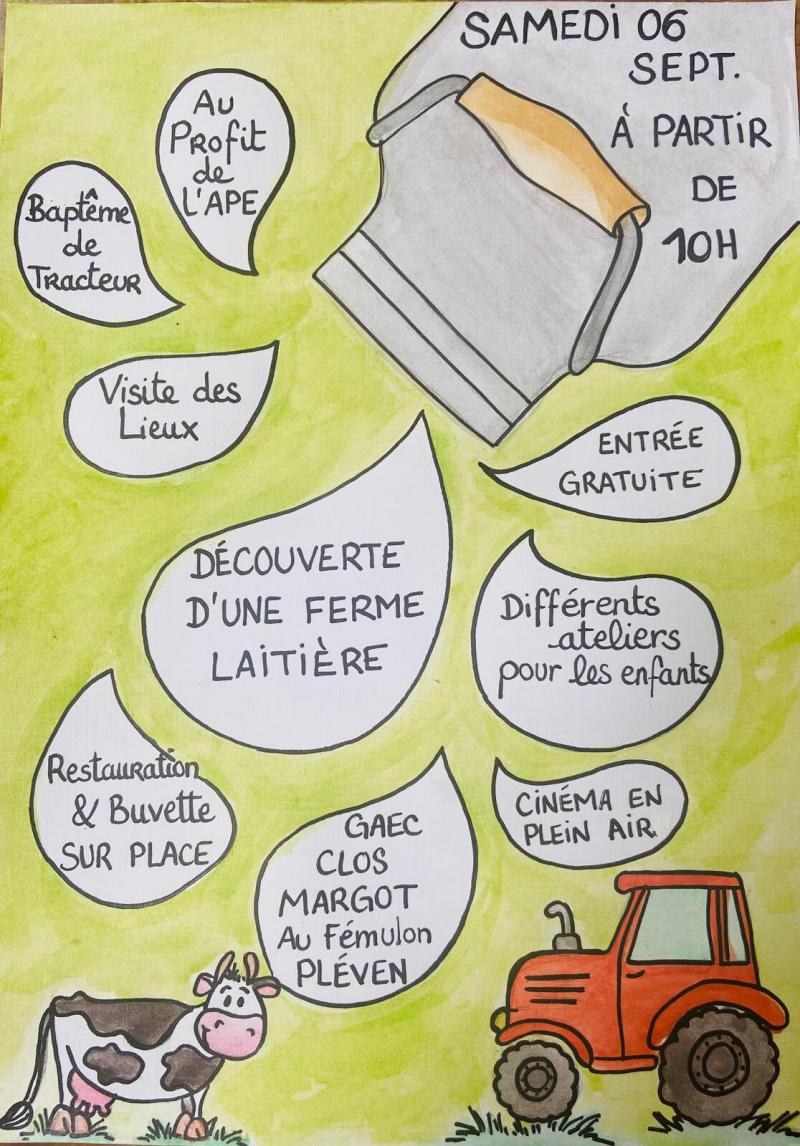 SAMEDI 06
SEPT.
À PARTIR
DE
10H
Au
Profit
de
L'APE
Baptême
de
Tracteur
Visite des
Lieux
ENTRÉE
GRATUITE
DÉCOUVERTE
D'UNE FERME
LAITIÈRE
Différents
ateliers
pour les enfants
Restauration
& Buvette
SUR PLACE
GAEC
CLOS
MARGOT
Au Fémulon
PLÉVEN
CINÉMA EN
PLEIN AIR.